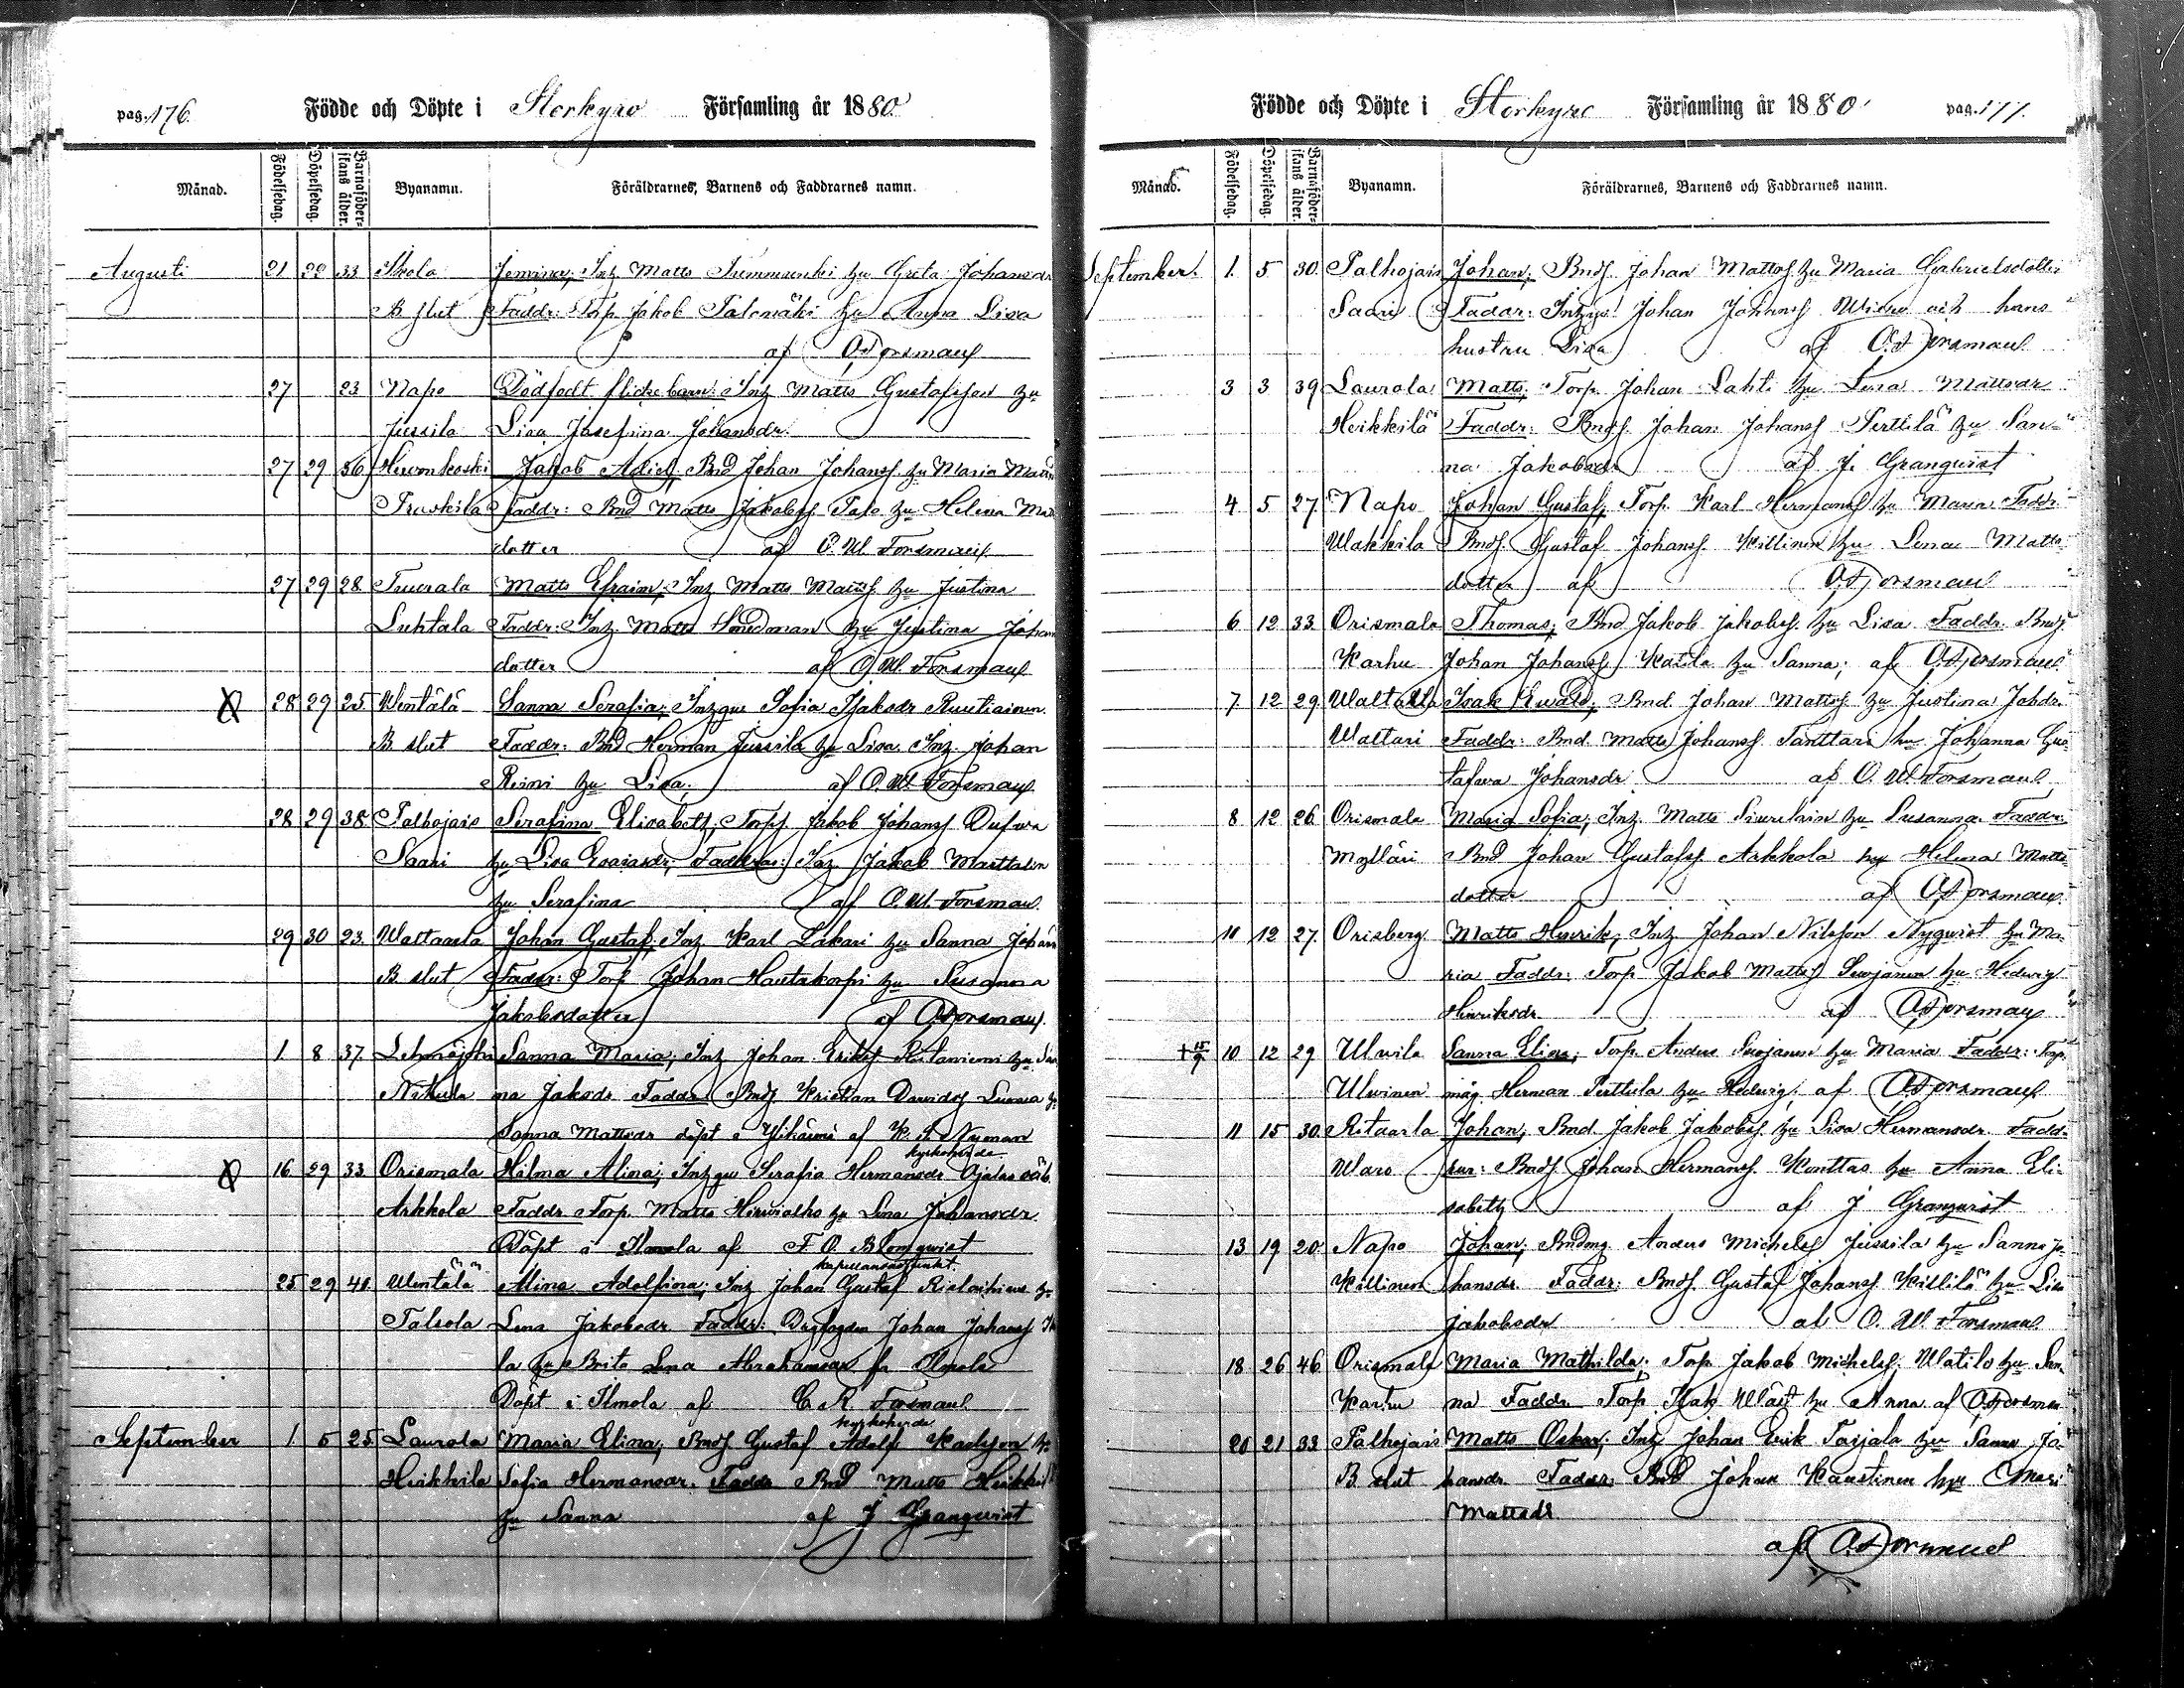 pag. 176. Födde och Döpte i Storkyro Församling år 1880
Månad. Födelsedag. Döpelsedag. Barnaföderskans ålder. Byanamn. Föräldrarnes, Barnens och Faddrarnes namn.
Augusti 21 22 33 Ikola Jemina; Inz Matts hu Greta Johansdr
B slut Faddr: Torp. Jakob Talomäki hu Anna Lisa
af O. Forsman
27 23 Napo Dödfödt flickebarn: Inz Matts Gustafsson hu
Jussila Lisa Josefina Johansdr.
27 29 36 Hiironkoski Jakob Bnd Johan Johanss hu Maria
Faddr: Bnd Matts Jakobss Talo hu Helena
dotter af O. W. Forsman
27 29 28 Tuurala Matts Efraim; Inz Matts Matss hu Justina
Luhtala Faddr: Inz. Matts Smedman hu Justina Johans
dotter af O. W. Forsman
28 29 25 Wentälä Sanna Serafia; Inzqv. Sofia Isaksdr Ruutiainen.
B slut Faddr: Bnd Herman Jussila hu Lisa. Inz. Johan
Reini hu Lisa. af O. W. Forsman
28 29 38 Palhojais Serafina Elisabeth; Torps Jakob Johanss Dufva
Saari hu Lisa Esaiasdr; Faddrar: Inz Jakob Marttalin
hu Serafina af O. W. Forsman.
29 30 23 Waltaarla Johan Gustaf; Inz Karl Lakari hu Sanna Johans
B slut Faddr: Torp Johan Hautakorpi hu Susanna
Jakobsdotter af O. Forsman.
1. 8 37. Lehmäjoki Sanna Maria; Inz Johan Erikss Ritaniemi hu San
Nikula na Jaksdr Faddr Bnds Kristian Davidss Luoma hu
Sanna Mattsdr döpt i Ylihärmä af K. A. Nyman
kyrkoherde
16 29 33 Orismala Hilma Alina; Inzqv Serafia Hermansdr Ojala oäb.
Arkkola Faddr Torp. Matts Hirvialho hu Lena Johansdr.
Döpt i Ilmola af F. O. Blomqvist
kapellansadjunkt.
25 29 41. Wentälä Alina Adolfina; Inz Johan Gustaf hu
Talsola Lena Jakobsdr Faddr: Johan Johanss
la hu Brita Lena Abrahamsdr fr Ilmola
Döpt i Ilmola af C. R. Forsman
kyrkoherde
September 1. 5 25 Laurola Maria Elina; Bnds Gustaf Adolf Karlsson hu
Heikkilä Sofia Hermansdr. Faddr Bnd Matts Heikkil
hu Sanna af J Granqvist
Födde och Döpte i Storkyro Församling år 1880. pag. 177.
Månad. Födelsedag. Döpelsedag. Barnaföderskans ålder. Byanamn. Föräldrarnes, Barnens och Faddrarnes namn.
September. 1. 5 30 Palhojais Johan; Bnds. Johan Mattss hu Maria Gabrielsdotter
Saari Faddr: Inhys Johan Johanss och hans
hustru Lisa af O. Forsman
3 3 39 Laurola Matts; Torp. Johan Lahti hu Lena Mattsdr
Heikkilä Faddr: Bnds Johan Johanss Perttilä hu San-
na Jakobsdr af J. Granqvist
4. 5 27 Napo Johan Gustaf; Torp. Karl Hermanss hu Maria Faddr
Wakkila Bnds. Gustaf Johanss. Killinen hu Lena Matts
dotter af O. Forsman
6 12 33 Orismala Thomas; Bnd Jakob Jakobss. hu Lisa Faddr. Bnds
Karhu Johan Johanss Katila hu Sanna; af O. Forsman
7. 12 29 Waltarla Isak Evald; Bnd. Johan Mattss hu Justina Johdr.
Waltari Faddr: Bnd. Matts Johanss Tanttari hu Johanna Gus-
tafava Johansdr af O. W. Forsman
8 12 26 Orismala Maria Sofia; Inz. Matts hu Susanna Faddr:
Mylläri Bnd Johan Gustafss Arkkola hu Helena Matts-
dotter af O. Forsman.
11 12 27. Orisberg Matts Henrik; Inz Johan Nilsson Nyqvist hu Ma-
ria Faddr: Torp Jakob Mattss Luojanen hu Hedvig
Henriksdr. af O. Forsman
+ 15/9 10 12 29 Ulvila Sanna Elina; Torp. Anders Luojanen hu Maria Faddr: Torp.
Ulvinen mäg. Herman Perttula hu Hedvig; af O. Forsman
11 15 30 Ritaarla Johan; Bnd. Jakob Jakobss. hu Lisa Hermansdr. Fadd-
Waro rar: Bnds. Johan Hermanss. Konttas hu Anna Eli-
sabeth af J Granqvist
13 19 20 Napo Johan; Bndmg Anders Michelss Jussila hu Sanna Jo-
Killinen hansdr. Faddr: Bnds. Gustaf Johanss. Killilä hu Lisa
Jakobsdr af O. W. Forsman
18 26 46 Orismala Maria Mathilda; Torp Jakob Michelss. Watilo hu San-
Karhu na Faddr Torp. Isak Wäst hu Anna af O. Forsman
20 21 33 Palhojais Matts Oskar; Inz Johan Erik Taijala hu Sanna Jo-
B slut hansdr Faddr; Bnd Johan Kaustinen hu Mari
Mattsdr
af O. Forsman